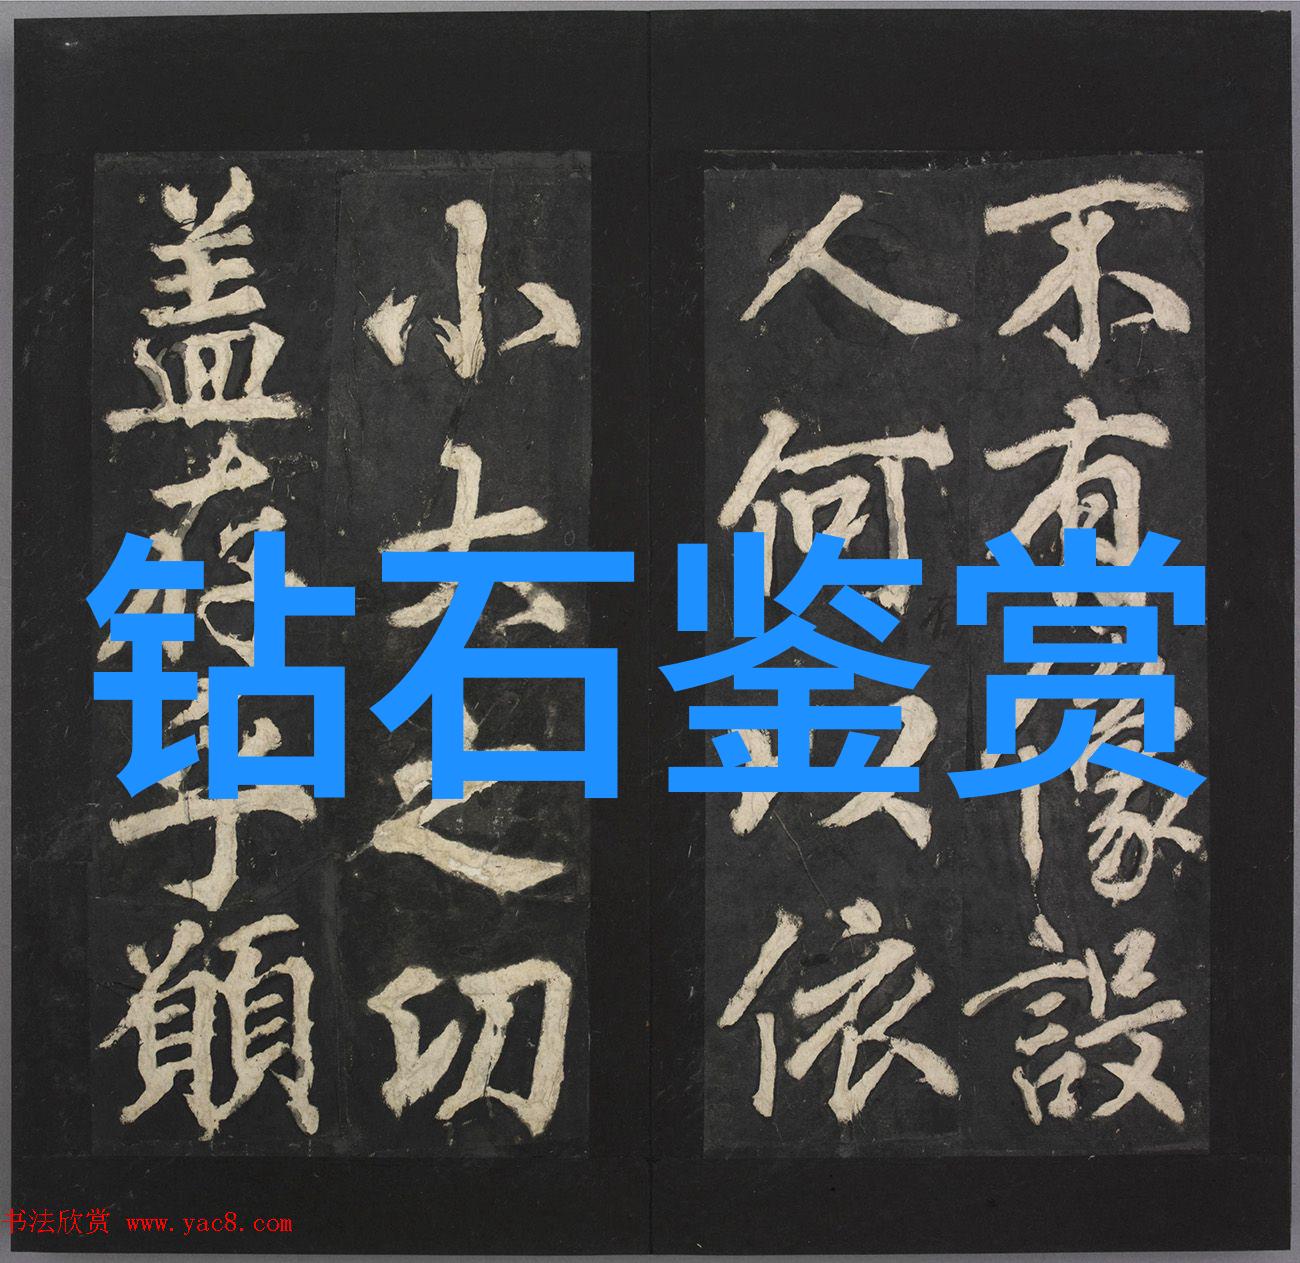 不有像設
人何以依
小大之切
盖存乎願
钻石鉴赏
书法欣赏 www.yac8.com